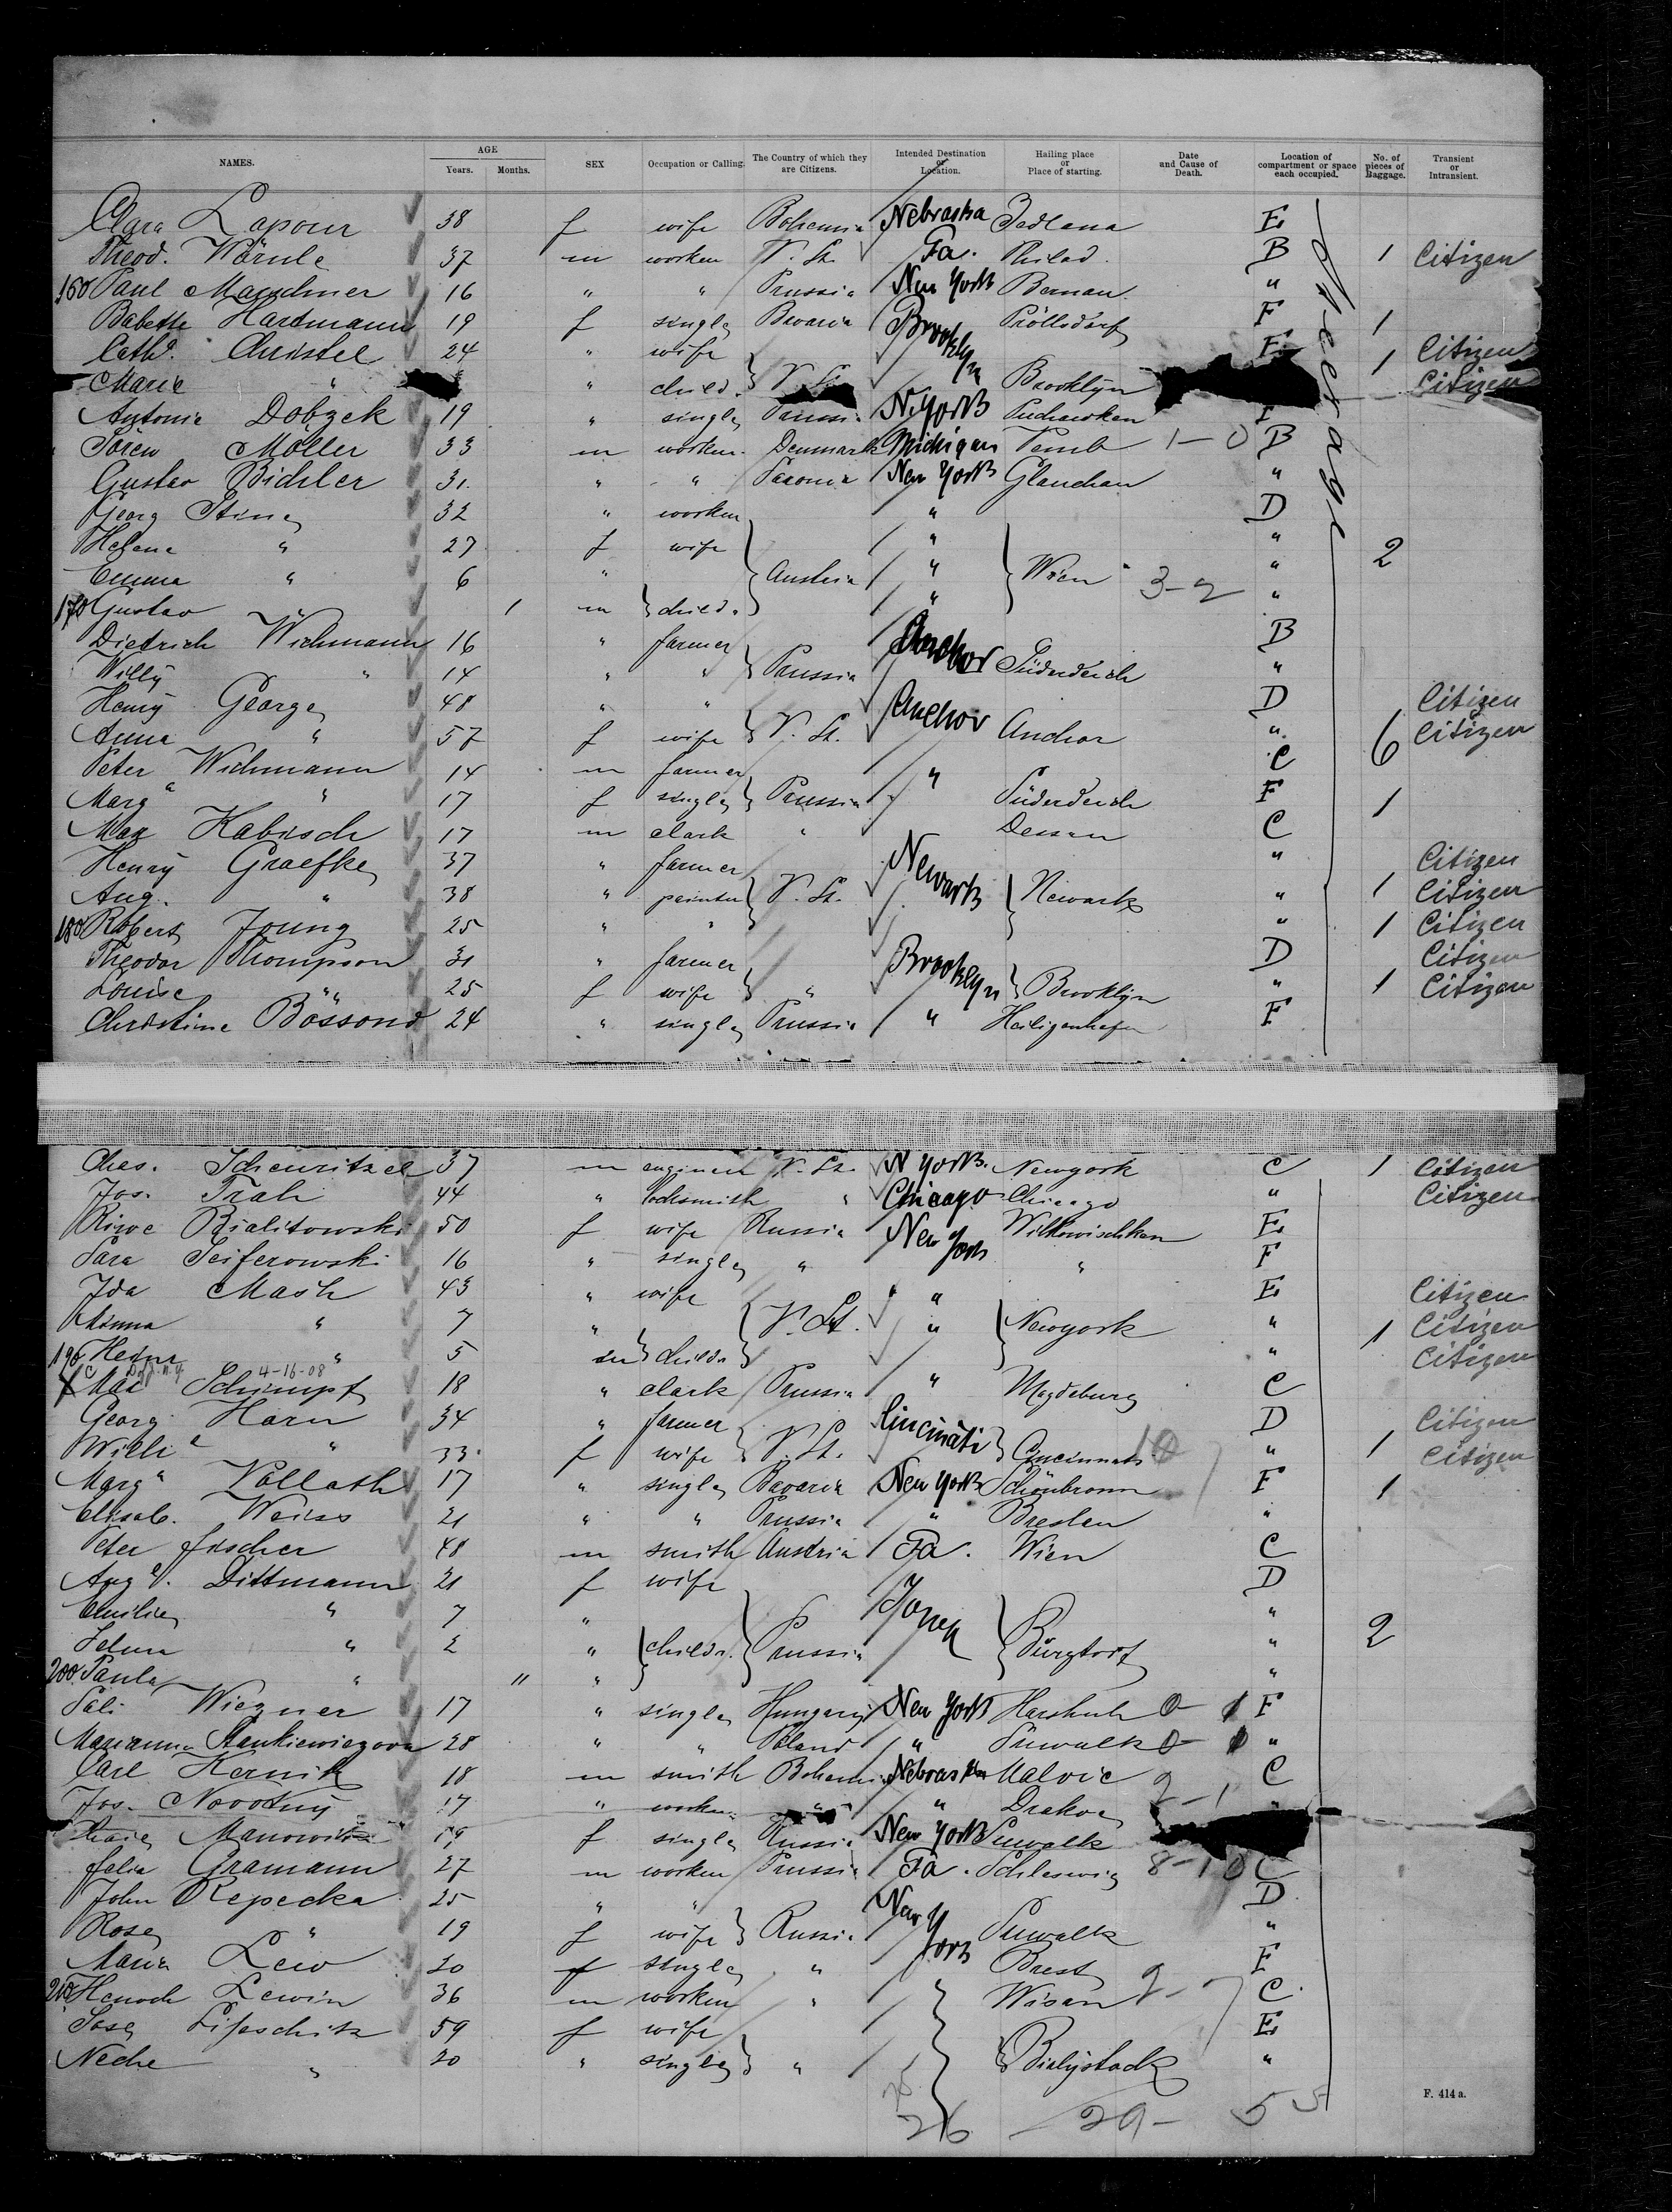 NAMES. AGE Years. Months. SEX Occupation or Calling. The Country of which they are Citizens. Intended Destination or Location. Hailing place or Place of starting. Date and Cause of Death. Location of compartment or space each occupied. No. of pieces of Baggage. Transient or Intransient.
Clara Lapour 38 f wife Bohemia Nebraska E
Theod. Wörnle 37 m worker V. St. Pa. Philad. B 1 Citizen
160 Paul Maschner 16 " " Prussia New York Bernau "
Babette Hartmann 19 f single Bavaria Brooklyn Pröllsdorf F 1
Cath. Christel 24 " wife E 1 Citizen
Marie " " child. V. St. Brooklyn Citizen
Antonie Dobzek 19 " single Prussia N. York F
Sören Möller 33 m worker Denmark Michigan Vemb 1-0 B
Gustav Bichler 31 " " Saxonia New York Glauchau "
Georg Stine 32 " worker " D
Helene " 27 f wife " " 2
Emma " 6 " Austria " Wien 3-2 "
170 Gustav 1 m child. "
Diedrich Wichmann 16 " farmer Anchor B
Willy " 14 " " Prussia Süderdeich "
Henry George 48 " " Anchor D Citizen
Anna " 57 f wife V. St. Anchor " 6 Citizen
Peter Wichmann 14 m farmer " C
Marg " 17 f single Prussia Süderdeich F 1
Max Kabisch 17 m clark " Dessau C
Henry Graefke 37 " farmer Newark " Citizen
Aug. " 38 " painter V. St. Newark " 1 Citizen
180 Robert Joung 25 " " " 1 Citizen
Theodor Thompson 31 " farmer Brooklyn D Citizen
Louise " 25 f wife " Brooklyn " 1 Citizen
Christine Bössond 24 " single Prussia " Heiligenhafen F
Steerage
Ches. Scheuritzel 37 m engineer V. St. N York. Newyork C 1 Citizen
Jos. Trah 44 " locksmith " Chicago Chicago " Citizen
Riwe Bialitowski 50 f wife Russia New York Wilkowischken E
Sara Seiferowski 16 " single " " F
Ida Mash 43 " wife " E Citizen
Minna " 7 " V. St. " Newyork " 1 Citizen
190 Hedw " 5 m childr " Citizen
4-16-08
X Max Schimpf 18 " clark Prussia " Magdeburg C
Georg Horn 34 " farmer Cincinati D Citizen
Willi " 33 f wife V. St. Cincinnati 10 " 1 Citizen
Marg Vollath 17 " single Bavaria New York Schönbronn F 1
Elisab. Weiss 21 " " Prussia " Breslau "
Peter Fischer 48 m smith Austria Pa. Wien C
Aug. Dittmann 21 f wife D
Emilie " 7 " "
Selma " 2 " childr. Prussia Burgtorf " 2
200 Paula " 11 " "
Sali Wiezner 17 " single Hungary New York F
Marianna Stankiewiczova 28 " " Poland " Suwalk "
Carl Hernik 18 m smith Bohemia Nebraska Malvic 2-1 C
Jos. Novotny 17 " worker " " Drakov
Manowitz 19 f single Russia New York Suwalk
Gramann 27 m worker Prussia Pa. Schleswig 8-10 C
John Repecka 25 " " New York D
Rose " 19 f wife Russia Suwalk "
Maria Lew 20 f single " Brest F
210 Henoch Lewin 36 m worker " Wisan 2-7 C
Sose Lifschitz 59 f wife E
Neche " 20 " single " Bialystock "
26 29- 55
F. 414 a.